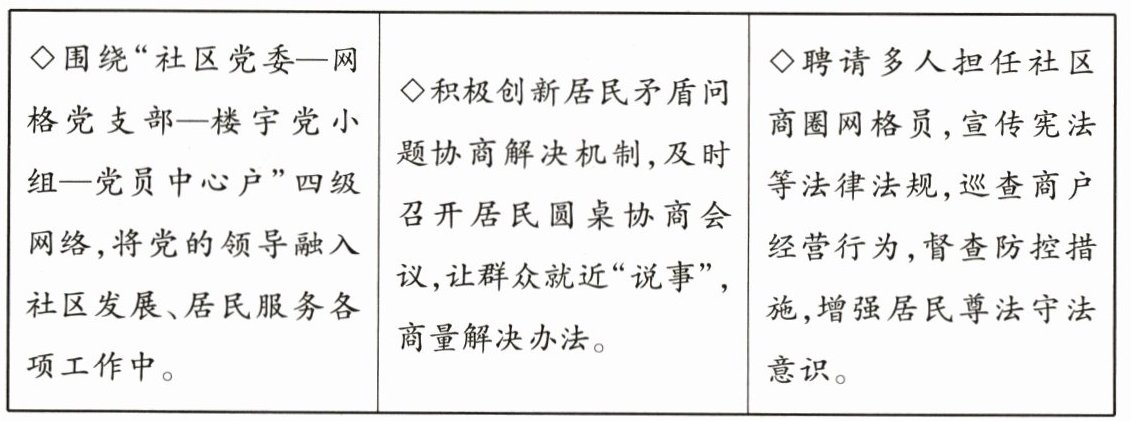 ◇围绕“社区党委—网
格党支部—楼宇党小
组—党员中心户”四级
网络,将党的领导融入
社区发展、居民服务各
项工作中。
◇积极创新居民矛盾问
题协商解决机制,及时
召开居民圆桌协商会
议,让群众就近“说事”,
商量解决办法。
◇聘请多人担任社区
商圈网格员,宣传宪法
等法律法规,巡查商户
经营行为,督查防控措
施,增强居民尊法守法
意识。